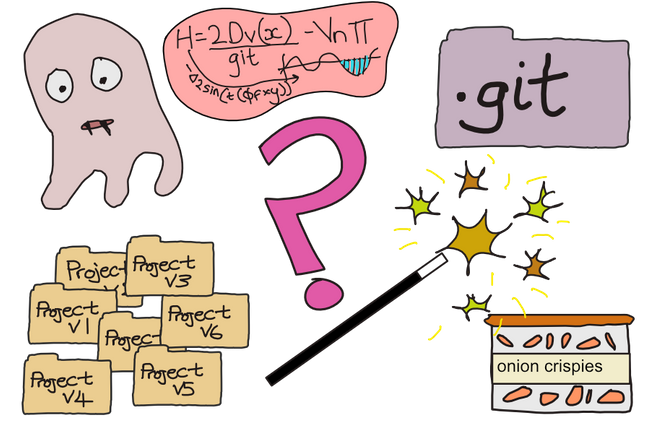 H=2Dv(x)/git -VnΠ
-Δ2sin(t(ϕf×y))
.git
?
Project
Project
V3
Project
V1
Project
V6
Project
V4
Project
V5
onion crispies